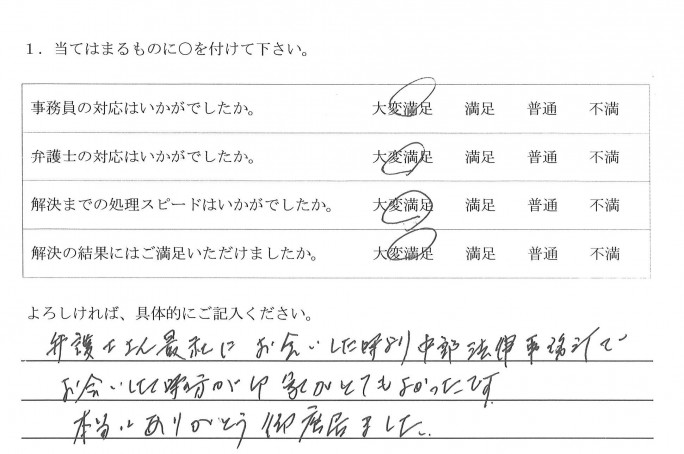 1．当てはまるものに○を付けて下さい。
事務員の対応はいかがでしたか。 大変満足 満足 普通 不満
弁護士の対応はいかがでしたか。 大変満足 満足 普通 不満
解決までの処理スピードはいかがでしたか。 大変満足 満足 普通 不満
解決の結果にはご満足いただけましたか。 大変満足 満足 普通 不満
よろしければ、具体的にご記入ください。
弁護士さん最初に お会いした時より 中部法律事務所で
お会いした時の方が印象がとてもよかったです
本当にありがとう御座居ました。